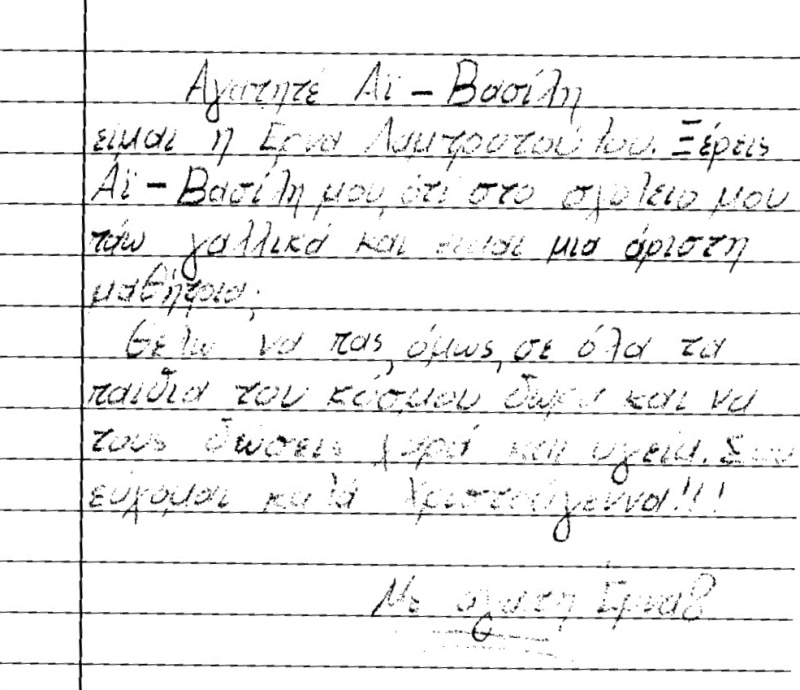 Αγαπητέ Αϊ - Βασίλη
είμαι η Ερνα Λαμπροπούλου. Ξέρεις
Αϊ - Βασίλη μου, ότι στο σχολείο μου
πάω γαλλικά και είμαι μια άριστη
μαθήτρια;
Θέλω να πας, όμως, σε όλα τα
παιδιά του κόσμου δώρα και να
τους δώσεις χαρά και υγεία. Σου
εύχομαι καλά Χριστούγεννα!!!
Με αγάπη Ερνα